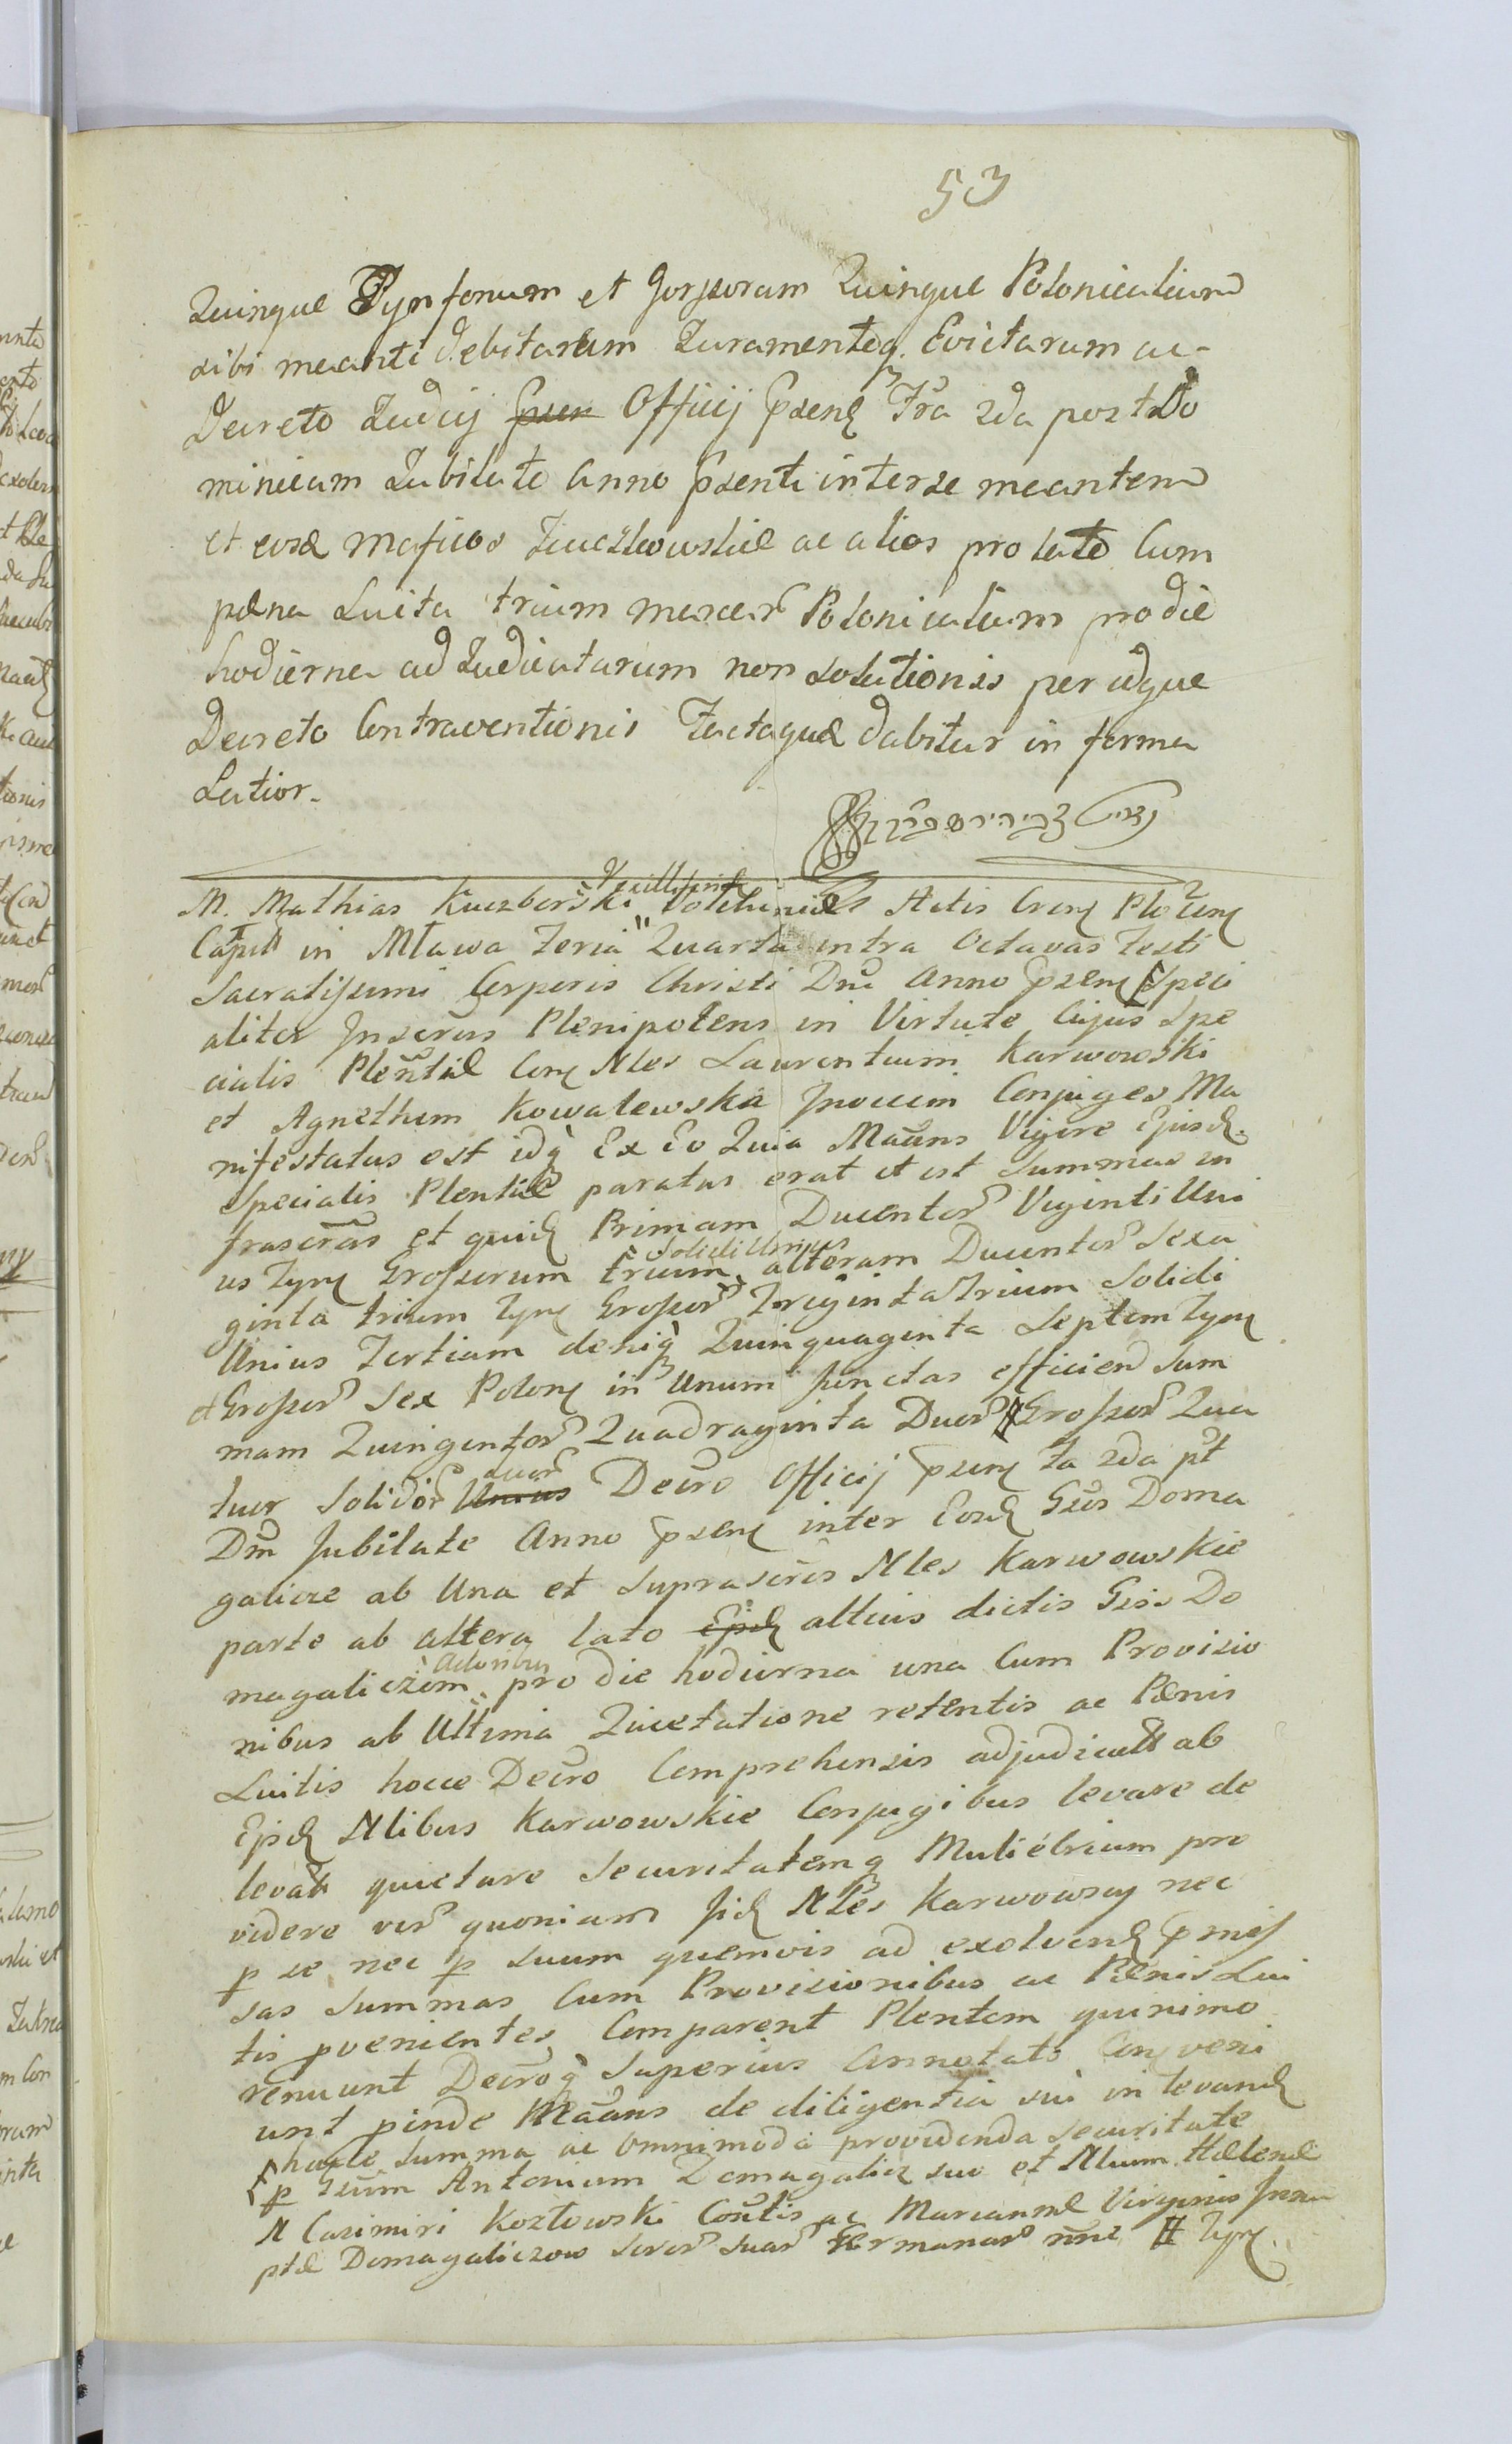 53
Quingue Tynfonum et Gorssorum Quingue Polonicalium
sibi meanti debitarum Juramentoq. Evictarum ac
Decreto Judcij Officij Psenς Fra 2da post Do
minicam Jubilate Anno Psenti inter se meantem
et eosd Mgficos ac alios pro lato Cum
pena Luita trium marcar Polonicalium pro die
hodierna adjudicatarum non solutionis per idque
Decreto Contraventionis Factaque dabitur in forma
Latior.
M. Mathias Kuczborski Vexillifer Actis Crenς Plocenς
Captt in Mława Feria Quarta intra Octavas Festi
Sacratissimi Corporis Christi Dni Anno psenς Speci
aliter Inscrus Plenipotens in Virtute Cujus Spe
cialis Plentiæ Conς Nles Laurentium Karwowski
et Agnethem Kowalewska Invicem Conjuges Ma
nifestatus est idq Ex Eo Quia Maans Vigore Ejusd.
Specialis Plentiæ paratus erat et est Summas in
frascras et quid Primam Ducentor Viginti Uni
us Tynς Grossorum trium Solidi Unius alteram Ducentor Sexa
ginta trium Tynς Grossor Triginta Trium Solidi
Unius Tertiam deniq Quinquaginta Septem Tynς
et Grossor Sex Polonς in Unum Junctas efficien Sum
mam Quingentor Quadraginta Duor Grossor Qua
tuor Solidor Unius duor Decro Officij psenς fa 2da pt
Dm Jubilate Anno psenς inter Eosd Gsos Doma
galicze ab Una et Suprascris Nles Karwowskie
parte ab altera lato Ejsd altius dictis Gsis Do
magaliczom Actoribus pro die hodierna una Cum Provisio
nibus ab Ultima Quietatione retentis ac Pænis
Luitis hocce Decro Comprehensis adjudicatt ab
Ejsd Nlibus Karwowskie Conjugibus levare de
levatt quietare Securitatemq Muliebrium pro
videre ver quoniam Jid Nles Karwowscy nec
p se nec p suum quemvis ad exolvend pmis
sas Summas Cum Provisionibus ac Pænis Lui
tis pvenientes Comparent Plentem quinimo
renuunt Decroq Superius Annotato Conςveni
unt pinde Maans de diligentia sui in levand
hacce Summa ac Omnimoda providenda Securitate
p Gsum Antonium Domagalicz suo et Nlium Helenæ
N Casimiri Kozłowski Contis ac Mariannæ Virginis Innu
ptæ Domagaliczow Soror Suar Germanar nne Tynς.